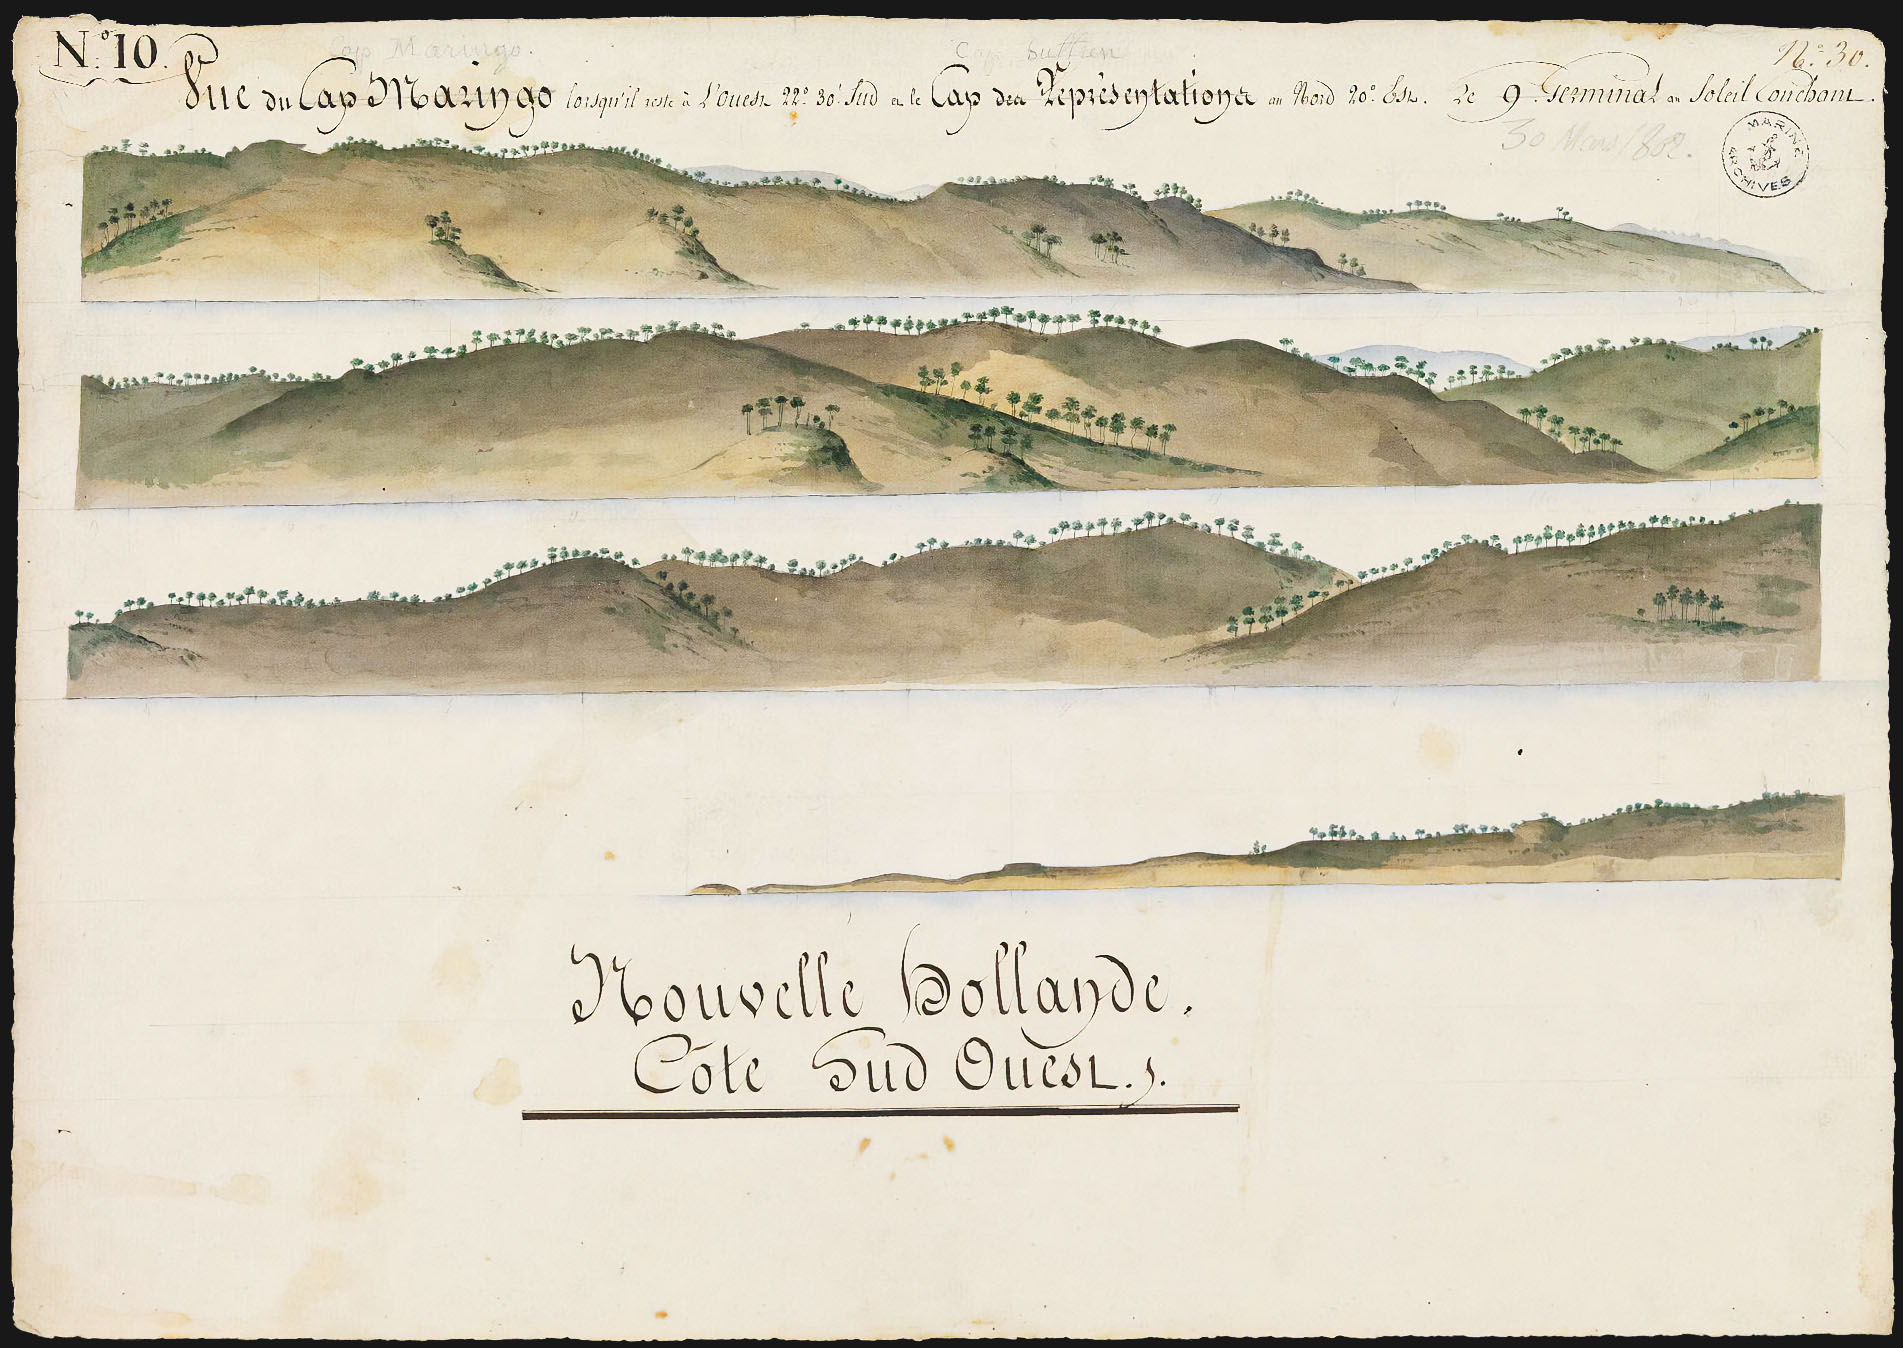 N.º 10.
Cap Maringo.
Cap Suffren
Nº 30.
Vue du Cap Maringo lorsqu'il reste à L'Ouest 22.º 30' Sud et le Cap des Représentations au Nord 20.º Est. Le 9 Germinal au Soleil Couchant.
30 Mars 1802.
MARINE ARCHIVES
Nouvelle Hollande.
Côte Sud Ouest.